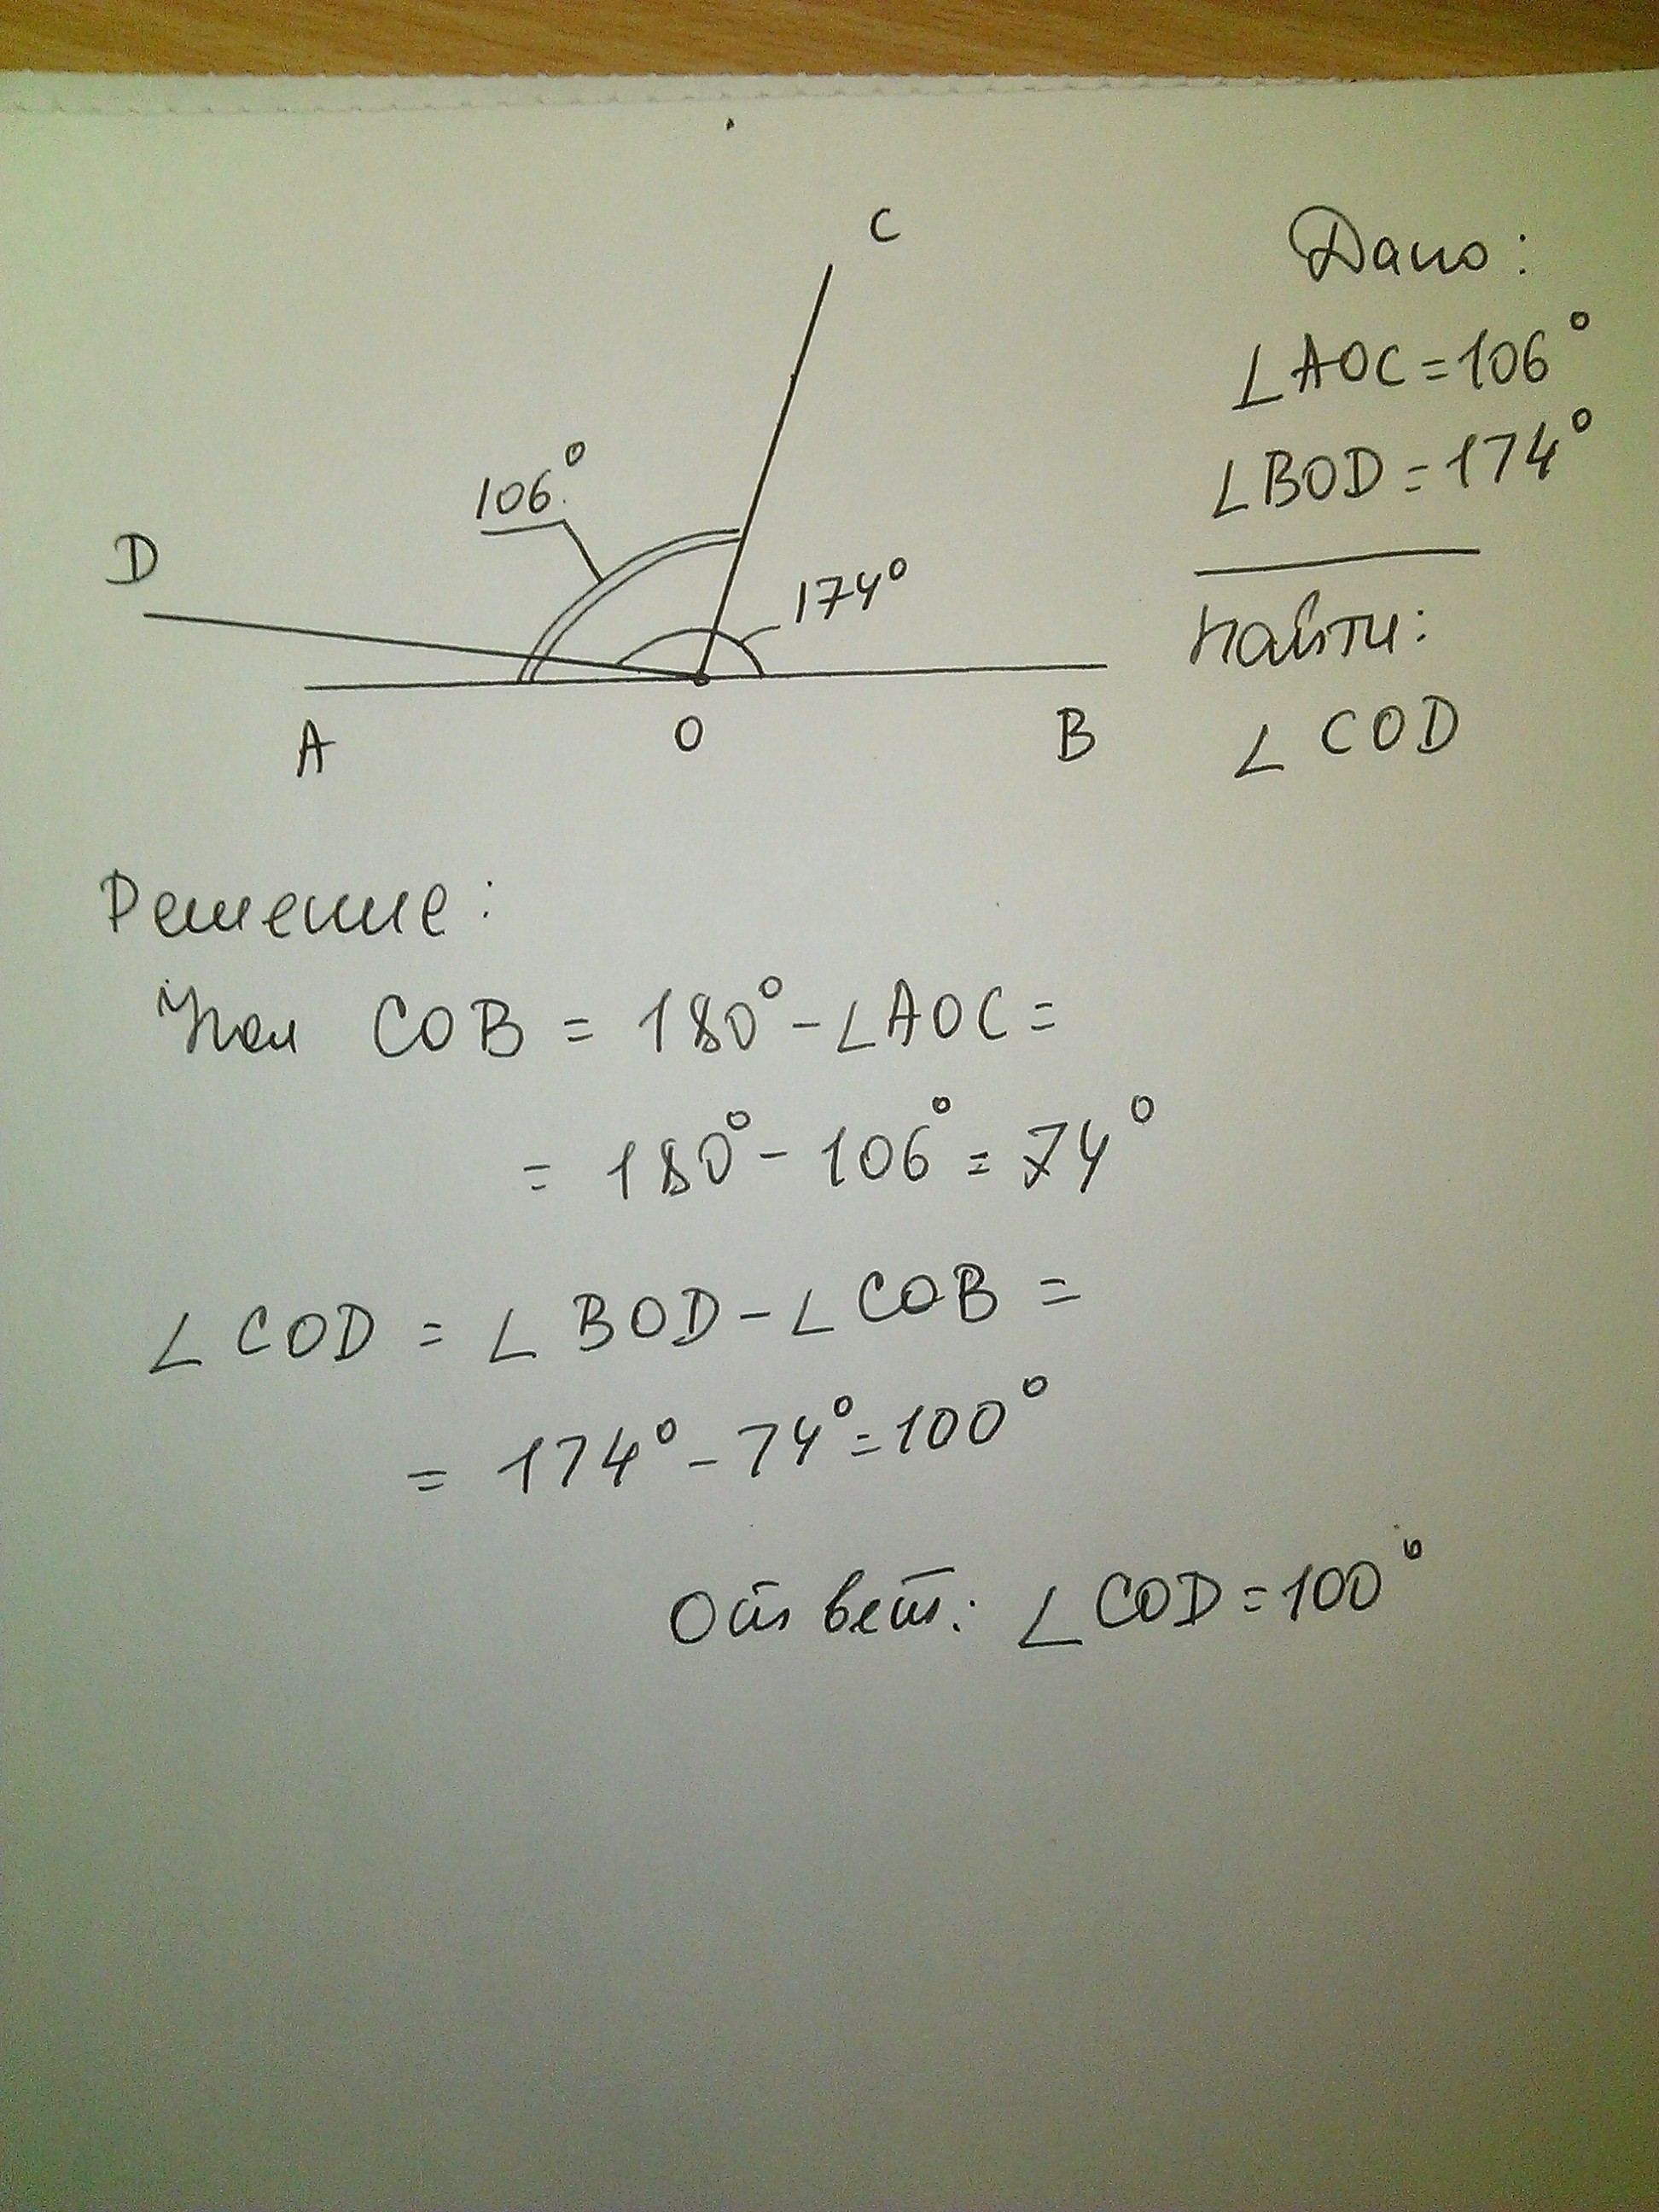 C
106°
D
174°
A
O
B
Дано:
∠AOC = 106°
∠BOD = 174°
Найти:
∠ COD
Решение:
Угол COB = 180° - ∠AOC =
= 180° - 106° = 74°
∠ COD = ∠ BOD - ∠ COB =
= 174° - 74° = 100°
Ответ: ∠ COD = 100°